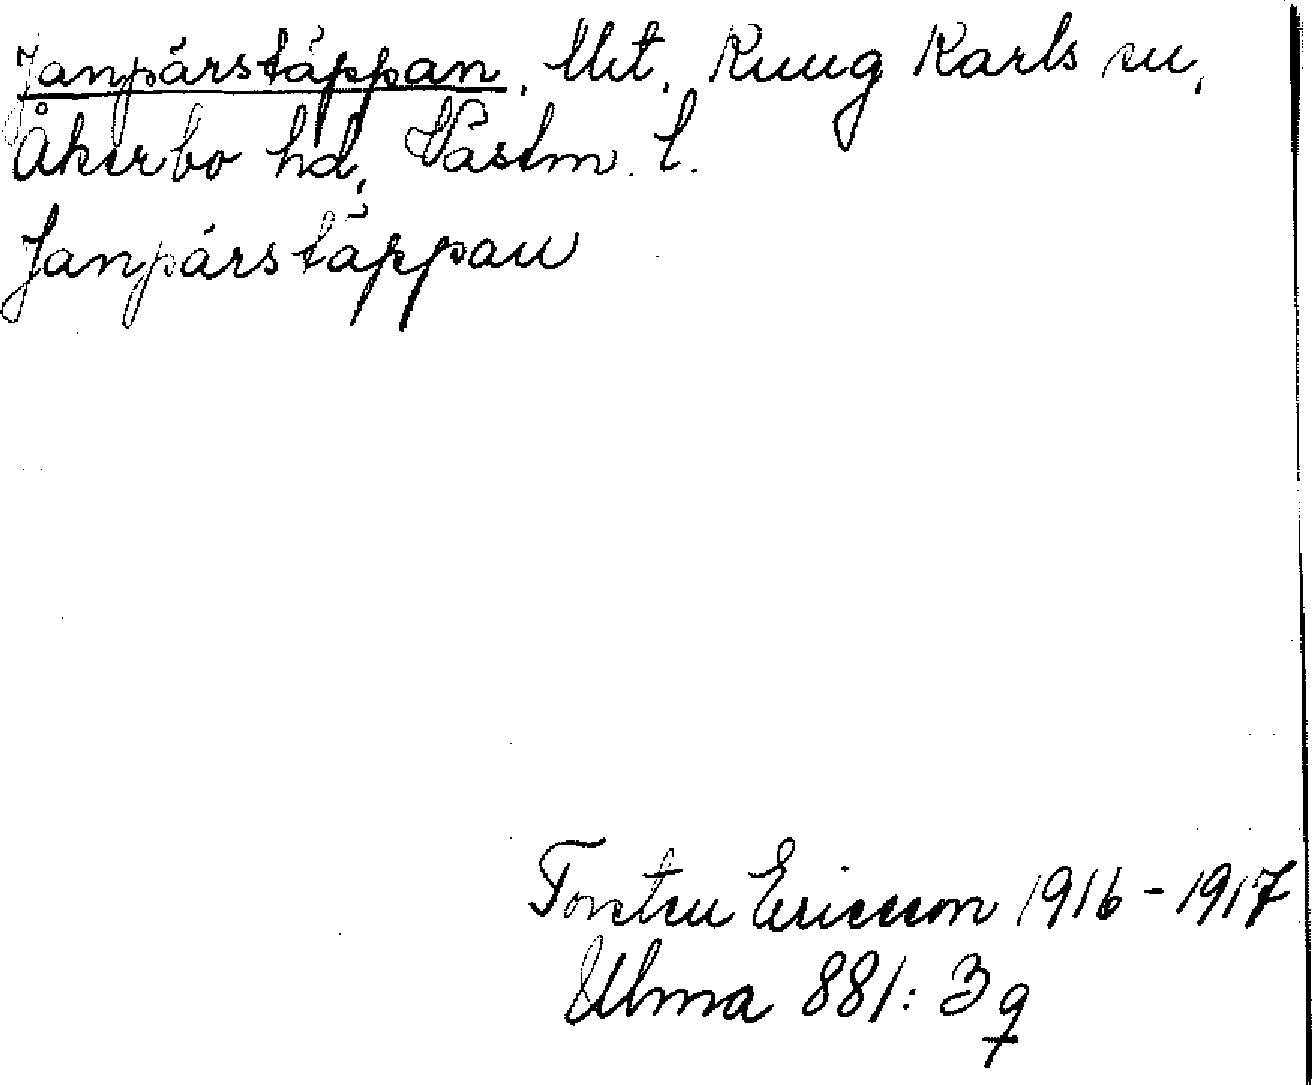 Janpärstäppan. Utt. Kung Karls sn,
Åkerbo hd, Västm. l.
Janpärstäppan
Torsten Ericsson 1916-1917
Ulma 881: 3